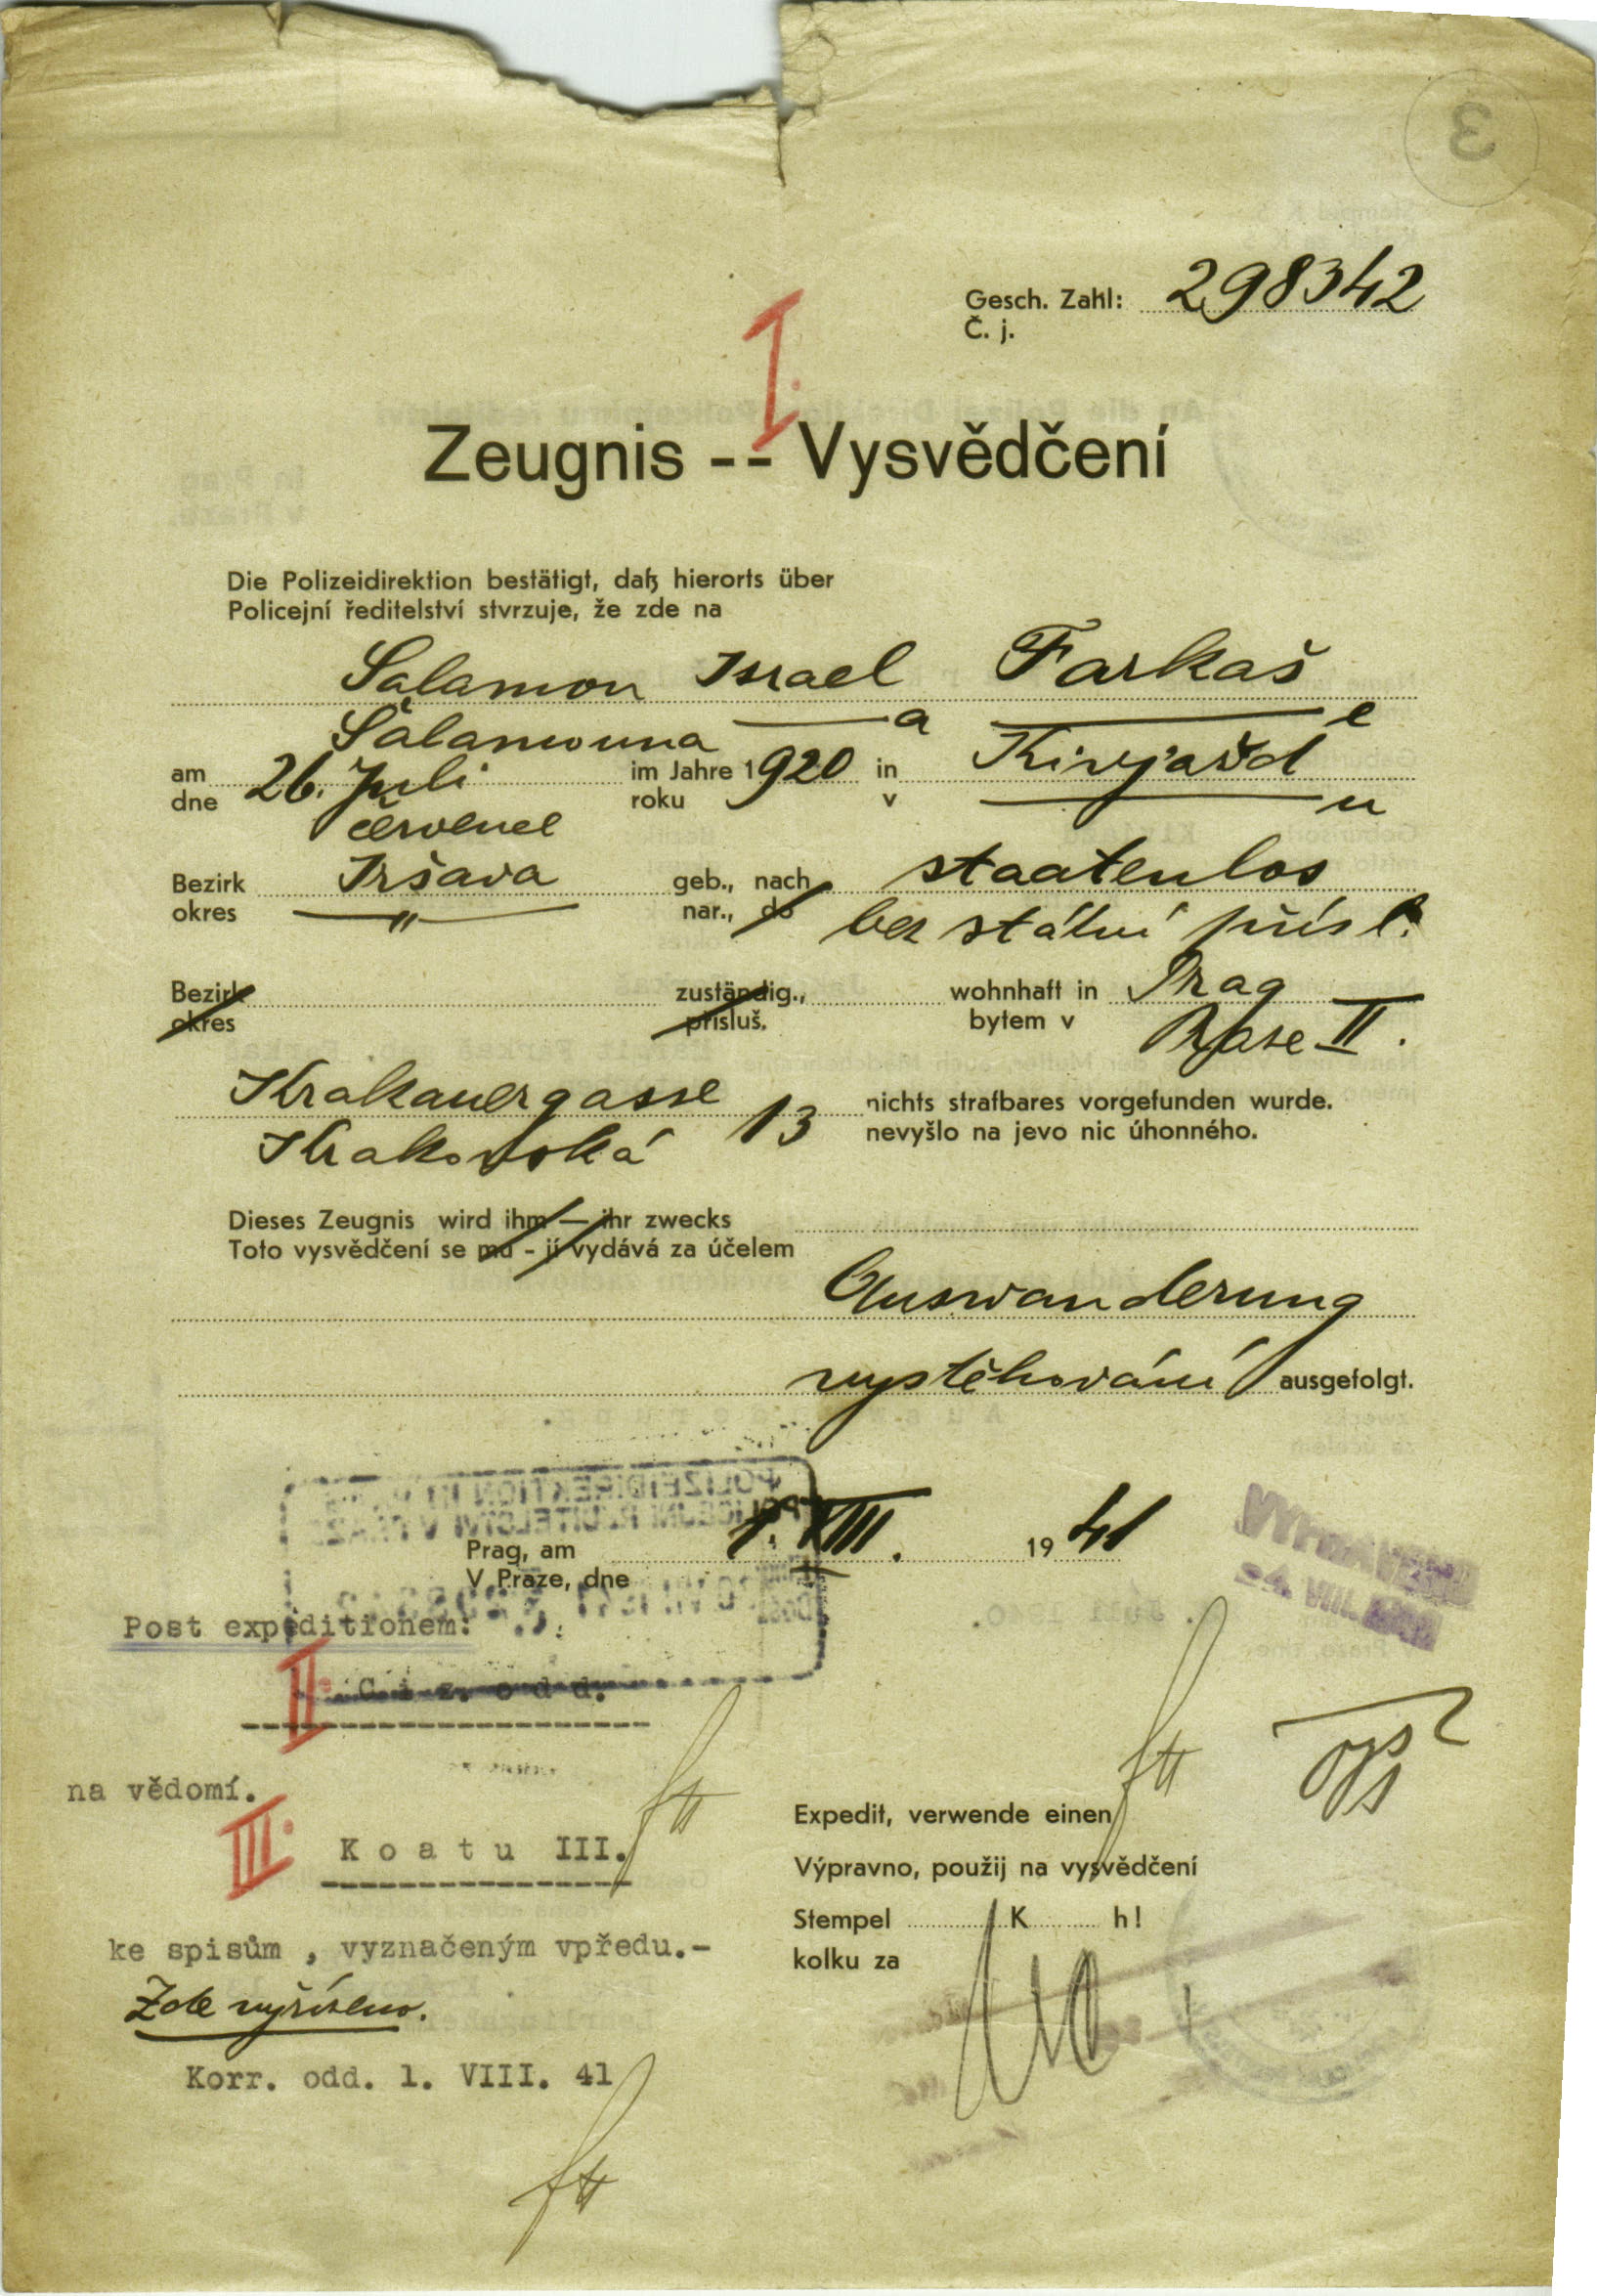 3
Gesch. Zahl: 298342
Č. j.
I.
Zeugnis -- Vysvědčení
Die Polizeidirektion bestätigt, daß hierorts über
Policejní ředitelství stvrzuje, že zde na
Salamon Israel Farkaš
Šalamouna —a —e
am 26. Juli im Jahre 1920 in Kivjažd
dne červenec roku v —u
Bezirk Iršava geb., nach staatenlos
okres —"— nar., do bez státní přísl.
Bezirk zuständig., wohnhaft in Prag
okres přísluš. bytem v Praze II.
Krakauergasse 13 nichts strafbares vorgefunden wurde.
Krakovská nevyšlo na jevo nic úhonného.
Dieses Zeugnis wird ihm — ihr zwecks
Toto vysvědčení se mu - jí vydává za účelem
Auswanderung
vystěhování ausgefolgt.
POLIZEIDIREKTION IN PRAG
POLICEJNÍ ŘEDITELSTVÍ V PRAZE
Prag, am 1. VIII. 1941
V Praze, dne
VYPRAVENO
Post expeditionem:
II. Ciz. odd.
na vědomí.
III. Koatu III.
Expedit, verwende einen
Výpravno, použij na vysvědčení
Stempel K h!
kolku za
ke spisům , vyznačeným vpředu.-
Zde vyřízeno.
Korr. odd. 1. VIII. 41